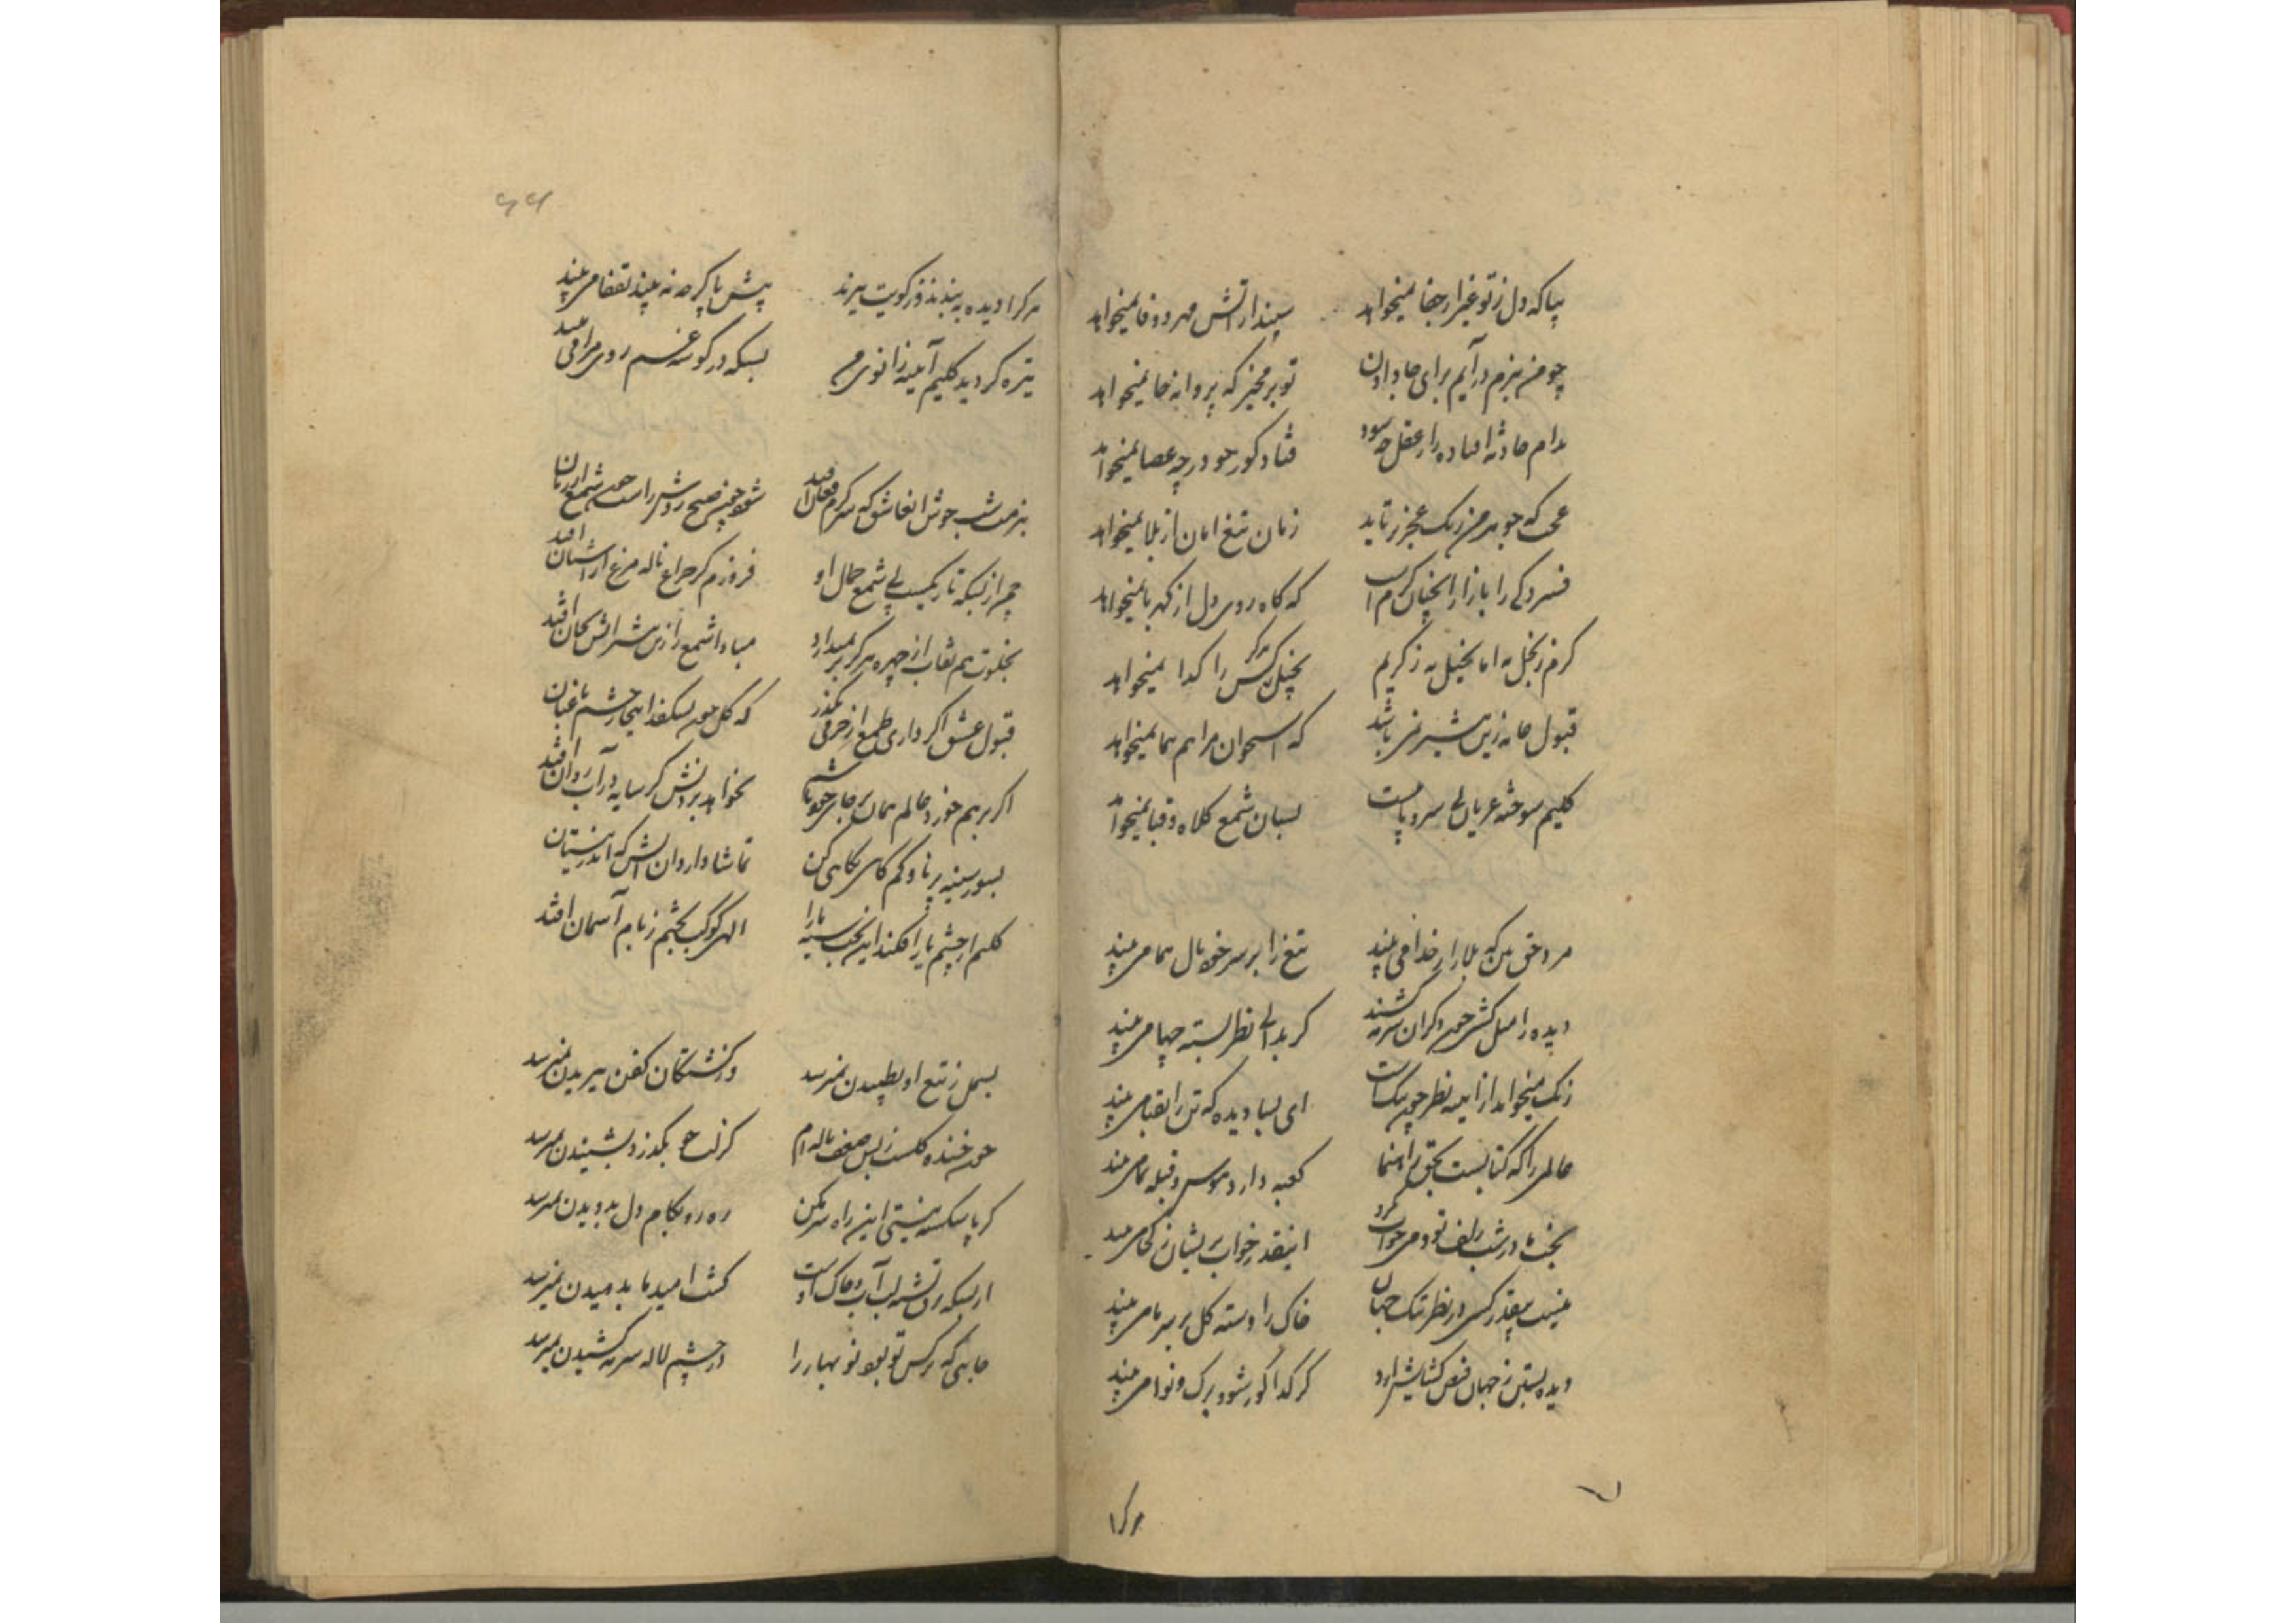 بیا که دل ز تو غیر از جفا نمیخواهد سپند از آتش مهر و وفا نمیخواهد
چو من ببزم درآیم برای جا دادن تو برمخیز که پروانه جا نمیخواهد
بدام حادثه افتاده را ز عقل چه سود فتاد کور چو در چه عصا نمیخواهد
که جوهر من ننگ عجز برتابد زبان تیغ امان از بلا نمیخواهد
فسردگی را بازار آنچنان گرم است که کاه روی دل از کهربا نمیخواهد
کرم ز بخل به اما بخیل به ز کریم بخیل هرگز کس را گدا نمیخواهد
قبول خانه زین بیشتر نمی باشد که استخوان مرا هم هما نمیخواهد
کلیم سوخته عریان بی سر و پاست بسان شمع کلاه و قبا نمیخواهد
مرد حق بین که بلا را ز خدا می بیند تیغ را بر سر خود بال هما می بیند
دیده را میل کش چون دگران سرمه کشند گر بدانی نظر بسته چها می بیند
زنگ میخواهد از آیینه نظر چون پاکست ای بسا دیده که تن را بقبا می بیند
عالمی را که کتابست بحق راهنما کعبه دارد هوس و قبله نما می بیند
بخت ما در شب زلف تو دمی خواب نکرد اینقدر خواب پریشان ز کجا می بیند
نیست بیقدر کسی در نظر تنگ جهان خاک را دسته گل بر سر ما می بیند
دیده بستن ز جهان فیض گشایش دارد گر گدا کور شود برگ و نوا می بیند
هر کرا
هر کرا دیده ببندند و ز کویت ببرند پیش پا گرچه نه بیند بقفا می بیند
تیره گردید کلیم آینه زانوی من بسکه در گوشه غم روی مرا می بیند
بزمت شب خوش آن عاشق که سرگرم فغان افتد شود چون صبح روشن راست چون شمع از زبان افتد
چمن از بسکه تاریکست بی شمع جمال او فروزم گر چراغ ناله مرغ از آشیان افتد
بخلوت هم نقاب از چهره هرگز برنمیدارد مبادا شمع را زین بیشتر آتش بجان افتد
قبول عشق اگر داری طمع از خرمی بگذر که گل چون بشکفد اینجا ز چشم باغبان افتد
اگر بر هم خورد عالم همان بر جای خود باشم نخواهد بردنش گر سایه در آب روان افتد
بسوی سینه پر ناوکم گاهی نگاهی کن تماشا دارد آن آتش که اندر نیستان افتد
کلیم از چشم یار افکند این بخت سیه ما را الهی کوکب بختم ز بام آسمان افتد
بسمل ز تیغ او بطپیدن نمیرسد در کشتگان کفن ببریدن نمیرسد
چون خنده گلست ز بس ضعف ناله ام کز لب چو بگذرد بشنیدن نمیرسد
گر پا شکسته نیستی این راه سر مکن ره رو بکام دل بدویدن نمیرسد
از بسکه برق تشنه لب آب و خاک اوست کشت امید ما بدمیدن نمیرسد
جایی که نرگس تو بود نوبهار را در چشم لاله سرمه کشیدن نمیرسد